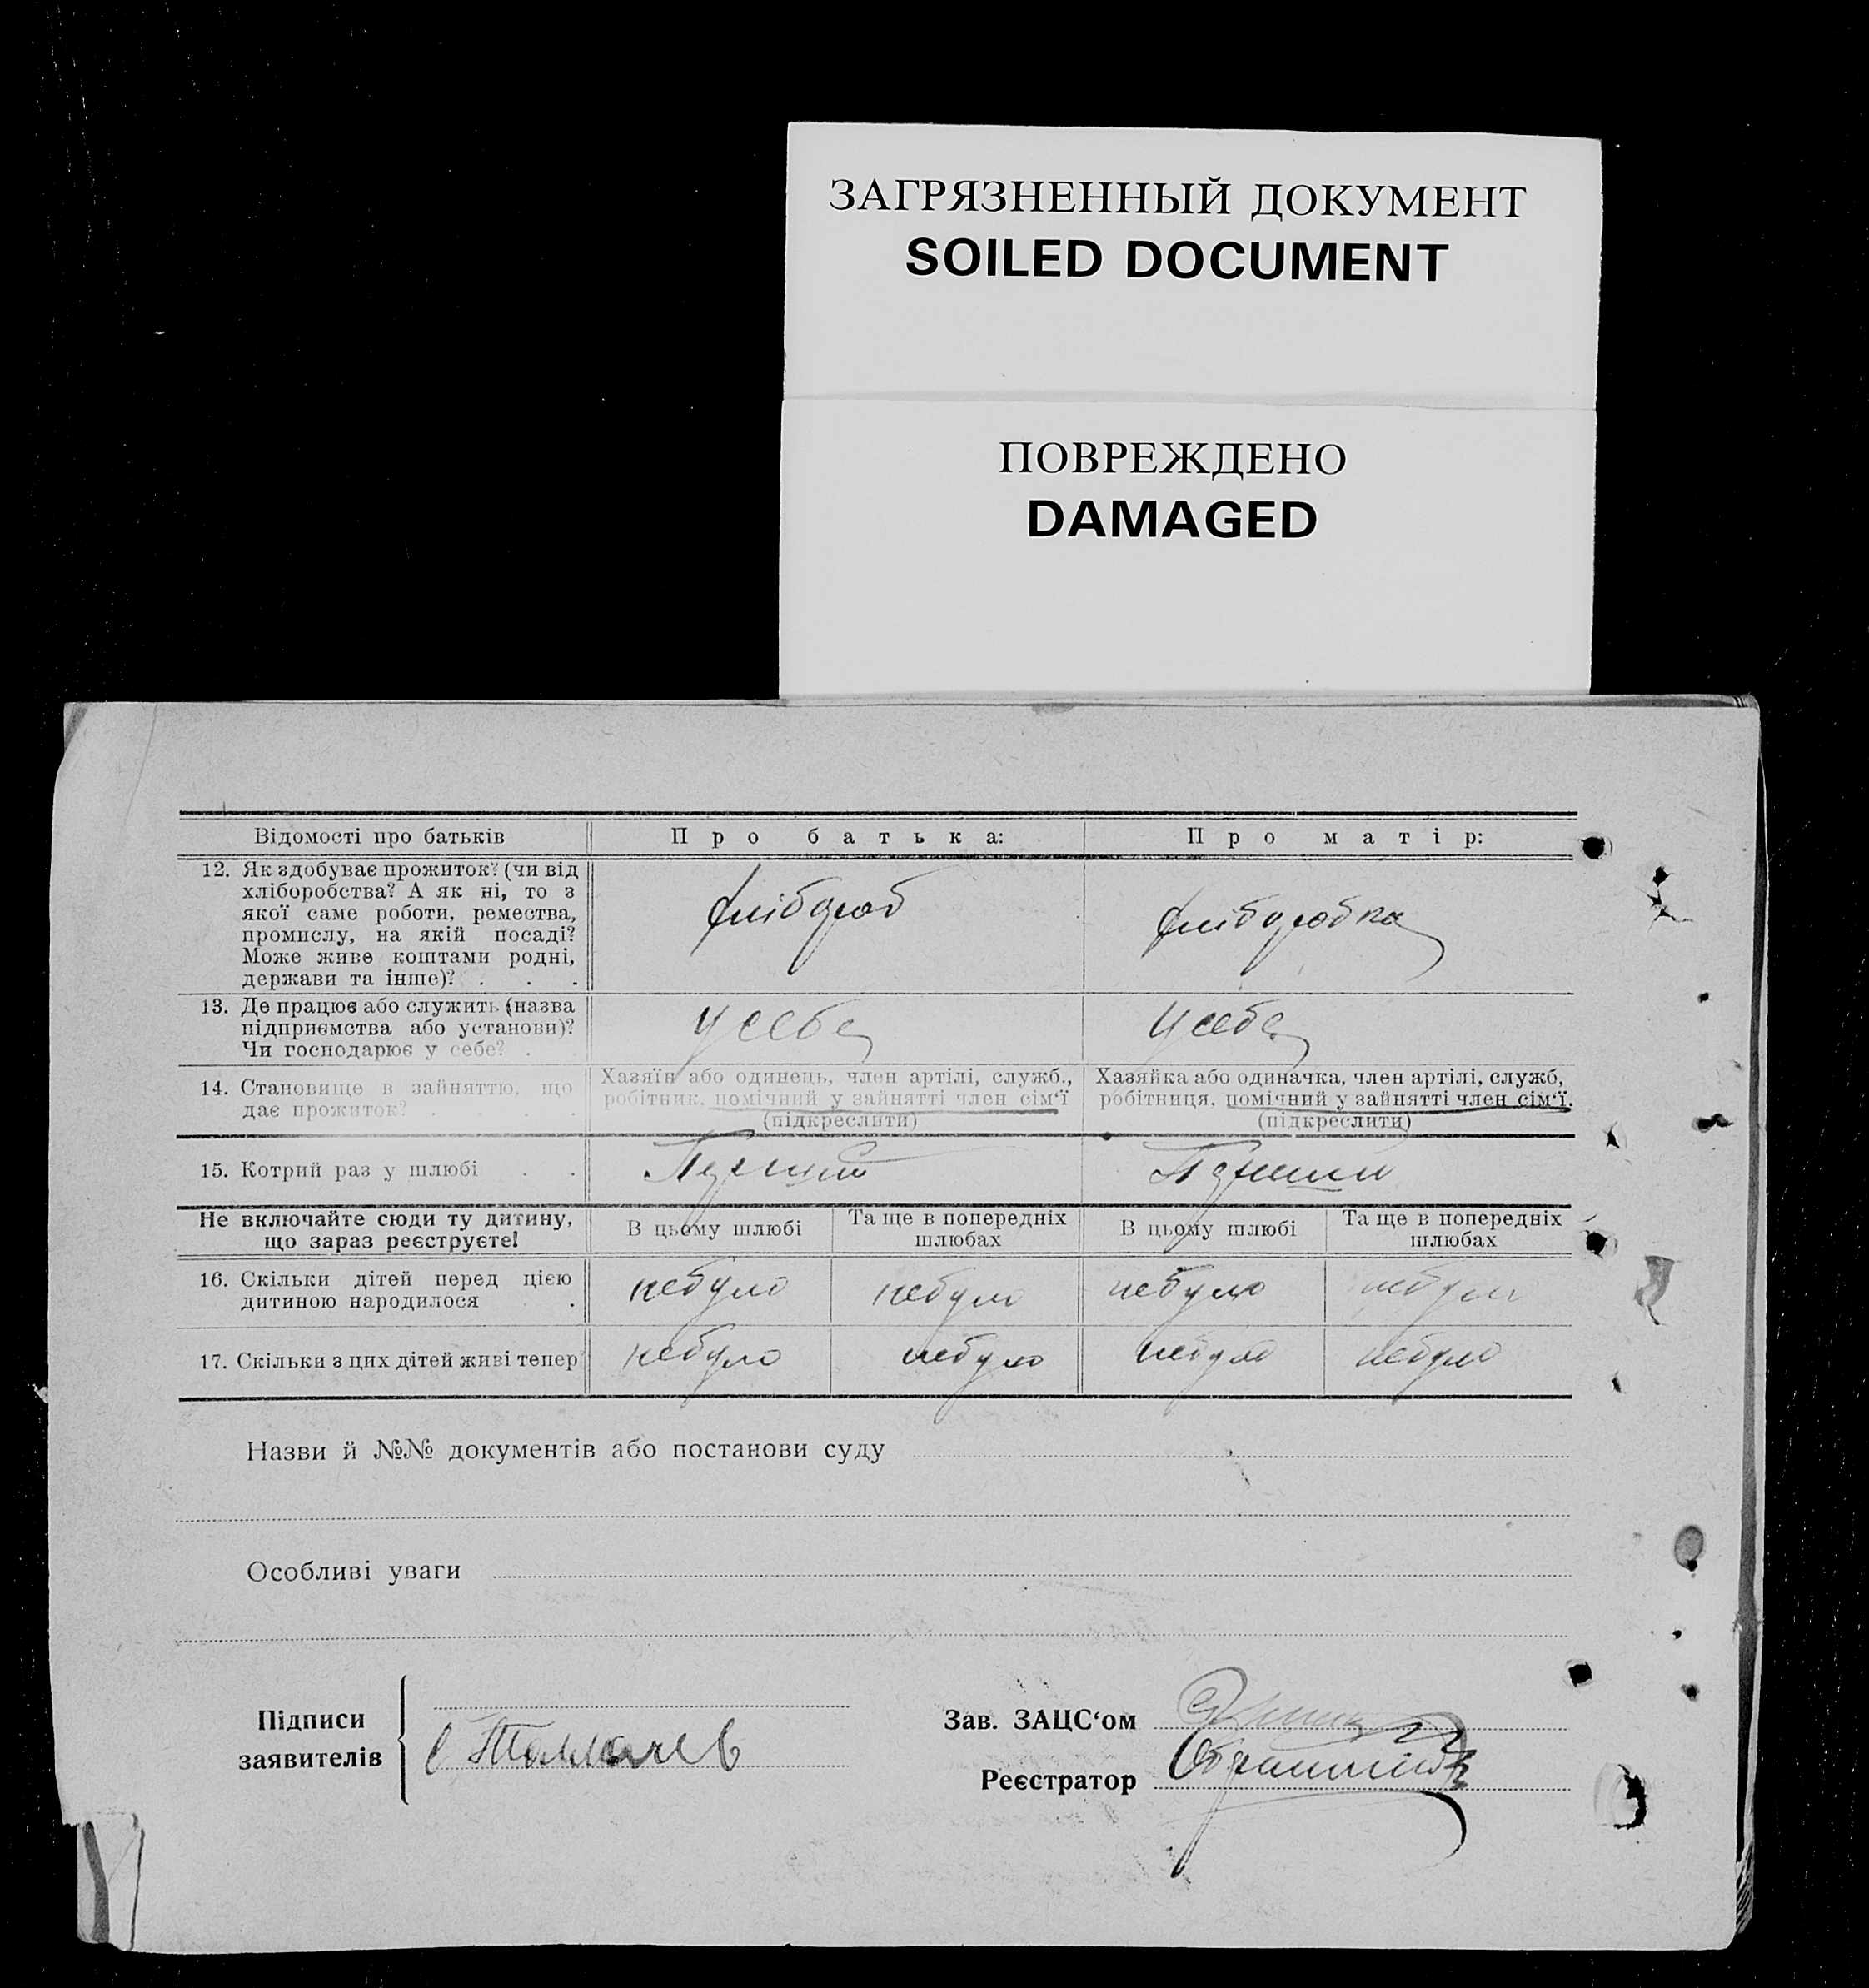 ЗАГРЯЗНЕННЫЙ ДОКУМЕНТ
SOILED DOCUMENT
ПОВРЕЖДЕНО
DAMAGED
Відомості про батьків Про батька: Про матір:
12. Як здобуває прожиток? (чи від
хліборобства? А як ні, то з
якої саме роботи, ремества,
промислу, на якій посаді?
Може живе коштами родні,
держави та інше)? . . .
хлібороб хліборобка
13. Де працює або служить (назва
підприємства або установи)?
Чи господарює у себе? .
у себе у себе
14. Становище в зайняттю, що
дає прожиток? . . . .
Хазяїн або одинець, член артілі, служб.,
робітник, помічний у зайнятті член сім‘ї
(підкреслити)
Хазяйка або одиначка, член артілі, служб,
робітниця, помічний у зайнятті член сім‘ї.
(підкреслити)
15. Котрий раз у шлюбі . . Перший Перший
Не включайте сюди ту дитину,
що зараз реєструєте!
В цьому шлюбі
Та ще в попередніх
шлюбах
В цьому шлюбі
Та ще в попередніх
шлюбах
16. Скільки дітей перед цією
дитиною народилося .
небуло небуло небуло небуло
17. Скільки з цих дітей живі тепер небуло небуло небуло небуло
Назви й №№ документів або постанови суду
Особливі уваги
Підписи
заявителів
Толмачев
Зав. ЗАЦС‘ом
Реєстратор